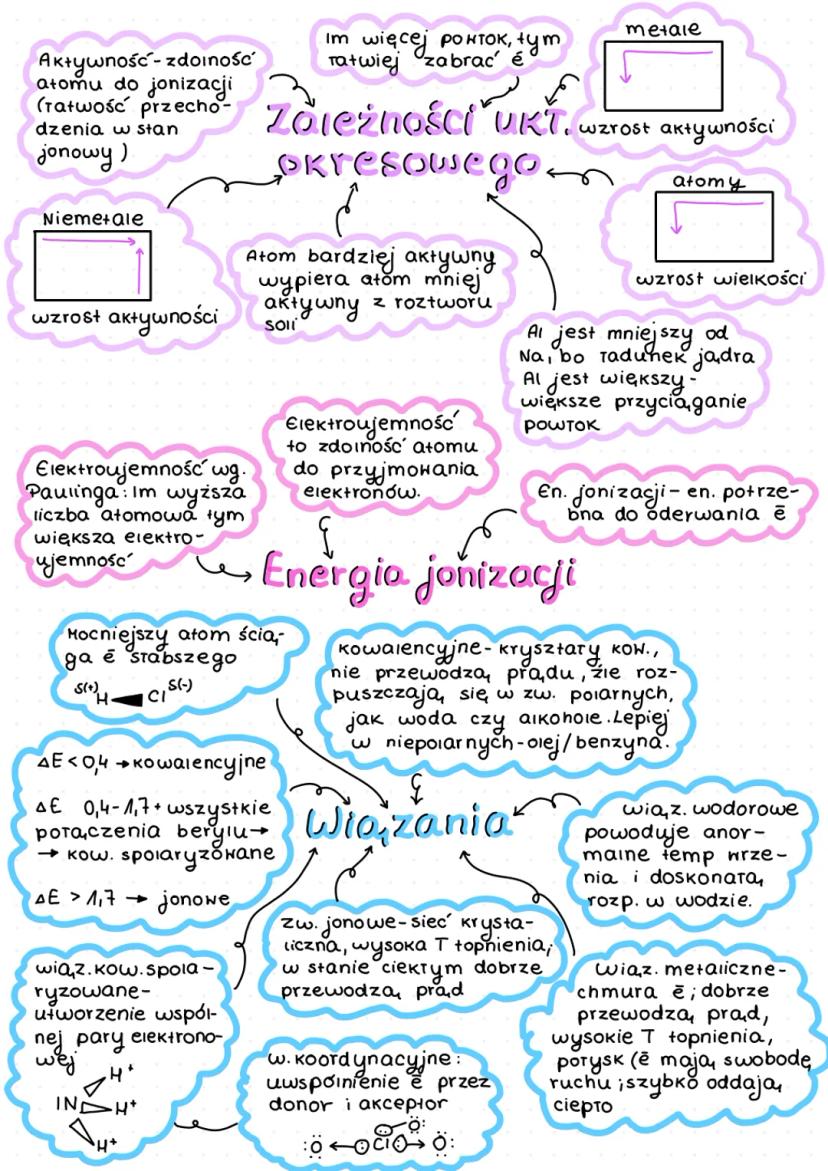 Aktywność - zdolność
atomu do jonizacji
(łatwość przecho-
dzenia w stan
jonowy)
Im więcej powłok, tym
łatwiej zabrać ē
metale
wzrost aktywności
Zależności ukł.
okresowego
Niemetale
wzrost aktywności
Atom bardziej aktywny
wypiera atom mniej
aktywny z roztworu
soli
atomy
wzrost wielkości
Al jest mniejszy od
Na, bo ładunek jądra
Al jest większy -
większe przyciąganie
powłok
Elektroujemność wg.
Paulinga: Im wyższa
liczba atomowa tym
większa elektro-
ujemność
Elektroujemność
to zdolność atomu
do przyjmowania
elektronów.
En. jonizacji - en. potrze-
bna do oderwania ē
Energia jonizacji
Mocniejszy atom ścią-
ga ē słabszego
δ(+) H Cl δ(-)
kowalencyjne - kryształy kow.,
nie przewodzą prądu, źle roz-
puszczają się w zw. polarnych,
jak woda czy alkohole. Lepiej
w niepolarnych - olej/benzyna.
ΔE < 0,4 → kowalencyjne
ΔE 0,4-1,7 + wszystkie
połączenia berylu →
→ kow. spolaryzowane
ΔE > 1,7 → jonowe
Wiązania
wiąz. wodorowe
powoduje anor-
malne temp wrze-
nia i doskonałą
rozp. w wodzie.
zw. jonowe - sieć krysta-
liczna, wysoka T topnienia,
w stanie ciekłym dobrze
przewodzą prąd
wiąz. kow. spola-
ryzowane -
utworzenie wspól-
nej pary elektrono-
wej
H+
IN H+
H+
w. koordynacyjne:
uwspólnienie ē przez
donor i akceptor
:Ö ← Cl → Ö:
Ö:
wiąz. metaliczne -
chmura ē; dobrze
przewodzą prąd,
wysokie T topnienia,
połysk (ē mają swobodę
ruchu; szybko oddają
ciepło